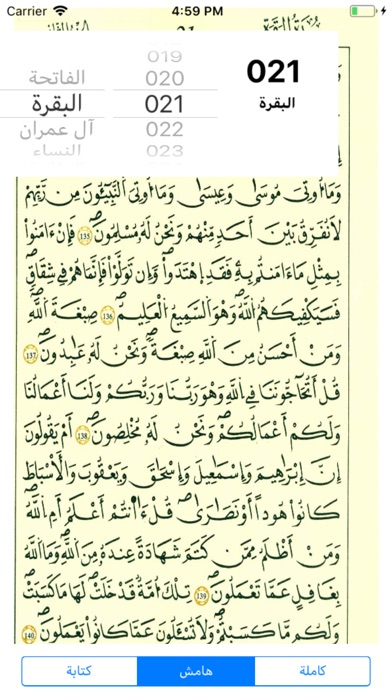 Carrier 4:59 PM
019
الفاتحة 020
البقرة 021
آل عمران 022
النساء 023
021
البقرة
وَمَا أُوتِيَ مُوسَىٰ وَعِيسَىٰ وَمَا أُوتِيَ النَّبِيـُٔونَ مِن رَّبِّهِمْ
لَا نُفَرِّقُ بَيْنَ أَحَدٍ مِّنْهُمْ وَنَحْنُ لَهُۥ مُسْلِمُونَ 135 فَإِنْ ءَامَنُواْ
بِمِثْلِ مَا ءَامَنتُم بِهِۦ فَقَدِ اِهْتَدَواْ وَّإِن تَوَلَّوْاْ فَإِنَّمَا هُمْ فِي شِقَاقٍ
فَسَيَكْفِيكَهُمُ اللَّهُ وَهُوَ السَّمِيعُ الْعَلِيمُ 136 صِبْغَةَ اللَّهِ
وَمَنْ أَحْسَنُ مِنَ اللَّهِ صِبْغَةً وَنَحْنُ لَهُۥ عَٰبِدُونَ 137
قُلْ أَتُحَآجُّونَنَا فِي اللَّهِ وَهُوَ رَبُّنَا وَرَبُّكُمْ وَلَنَا أَعْمَالُنَا
وَلَكُمْ أَعْمَالُكُمْ وَنَحْنُ لَهُۥ مُخْلِصُونَ 138 أَمْ يَقُولُونَ
إِنَّ إِبْرَاهِيمَ وَإِسْمَاعِيلَ وَإِسْحَاقَ وَيَعْقُوبَ وَالْأَسْبَاطَ
كَانُواْ هُوداً أَوْ نَصَارَىٰ قُلْ ءَآنتُمْ أَعْلَمُ أَمِ اللَّهُ
وَمَنْ أَظْلَمُ مِمَّن كَتَمَ شَهَادَةً عِندَهُۥ مِنَ اللَّهِ وَمَا اللَّهُ
بِغَافِلٍ عَمَّا تَعْمَلُونَ 139 تِلْكَ أُمَّةٌ قَدْ خَلَتْ لَهَا مَا كَسَبَتْ
وَلَكُم مَّا كَسَبْتُمْ وَلَا تُسْـَٔلُونَ عَمَّا كَانُواْ يَعْمَلُونَ 140
كاملة هامش كتابة